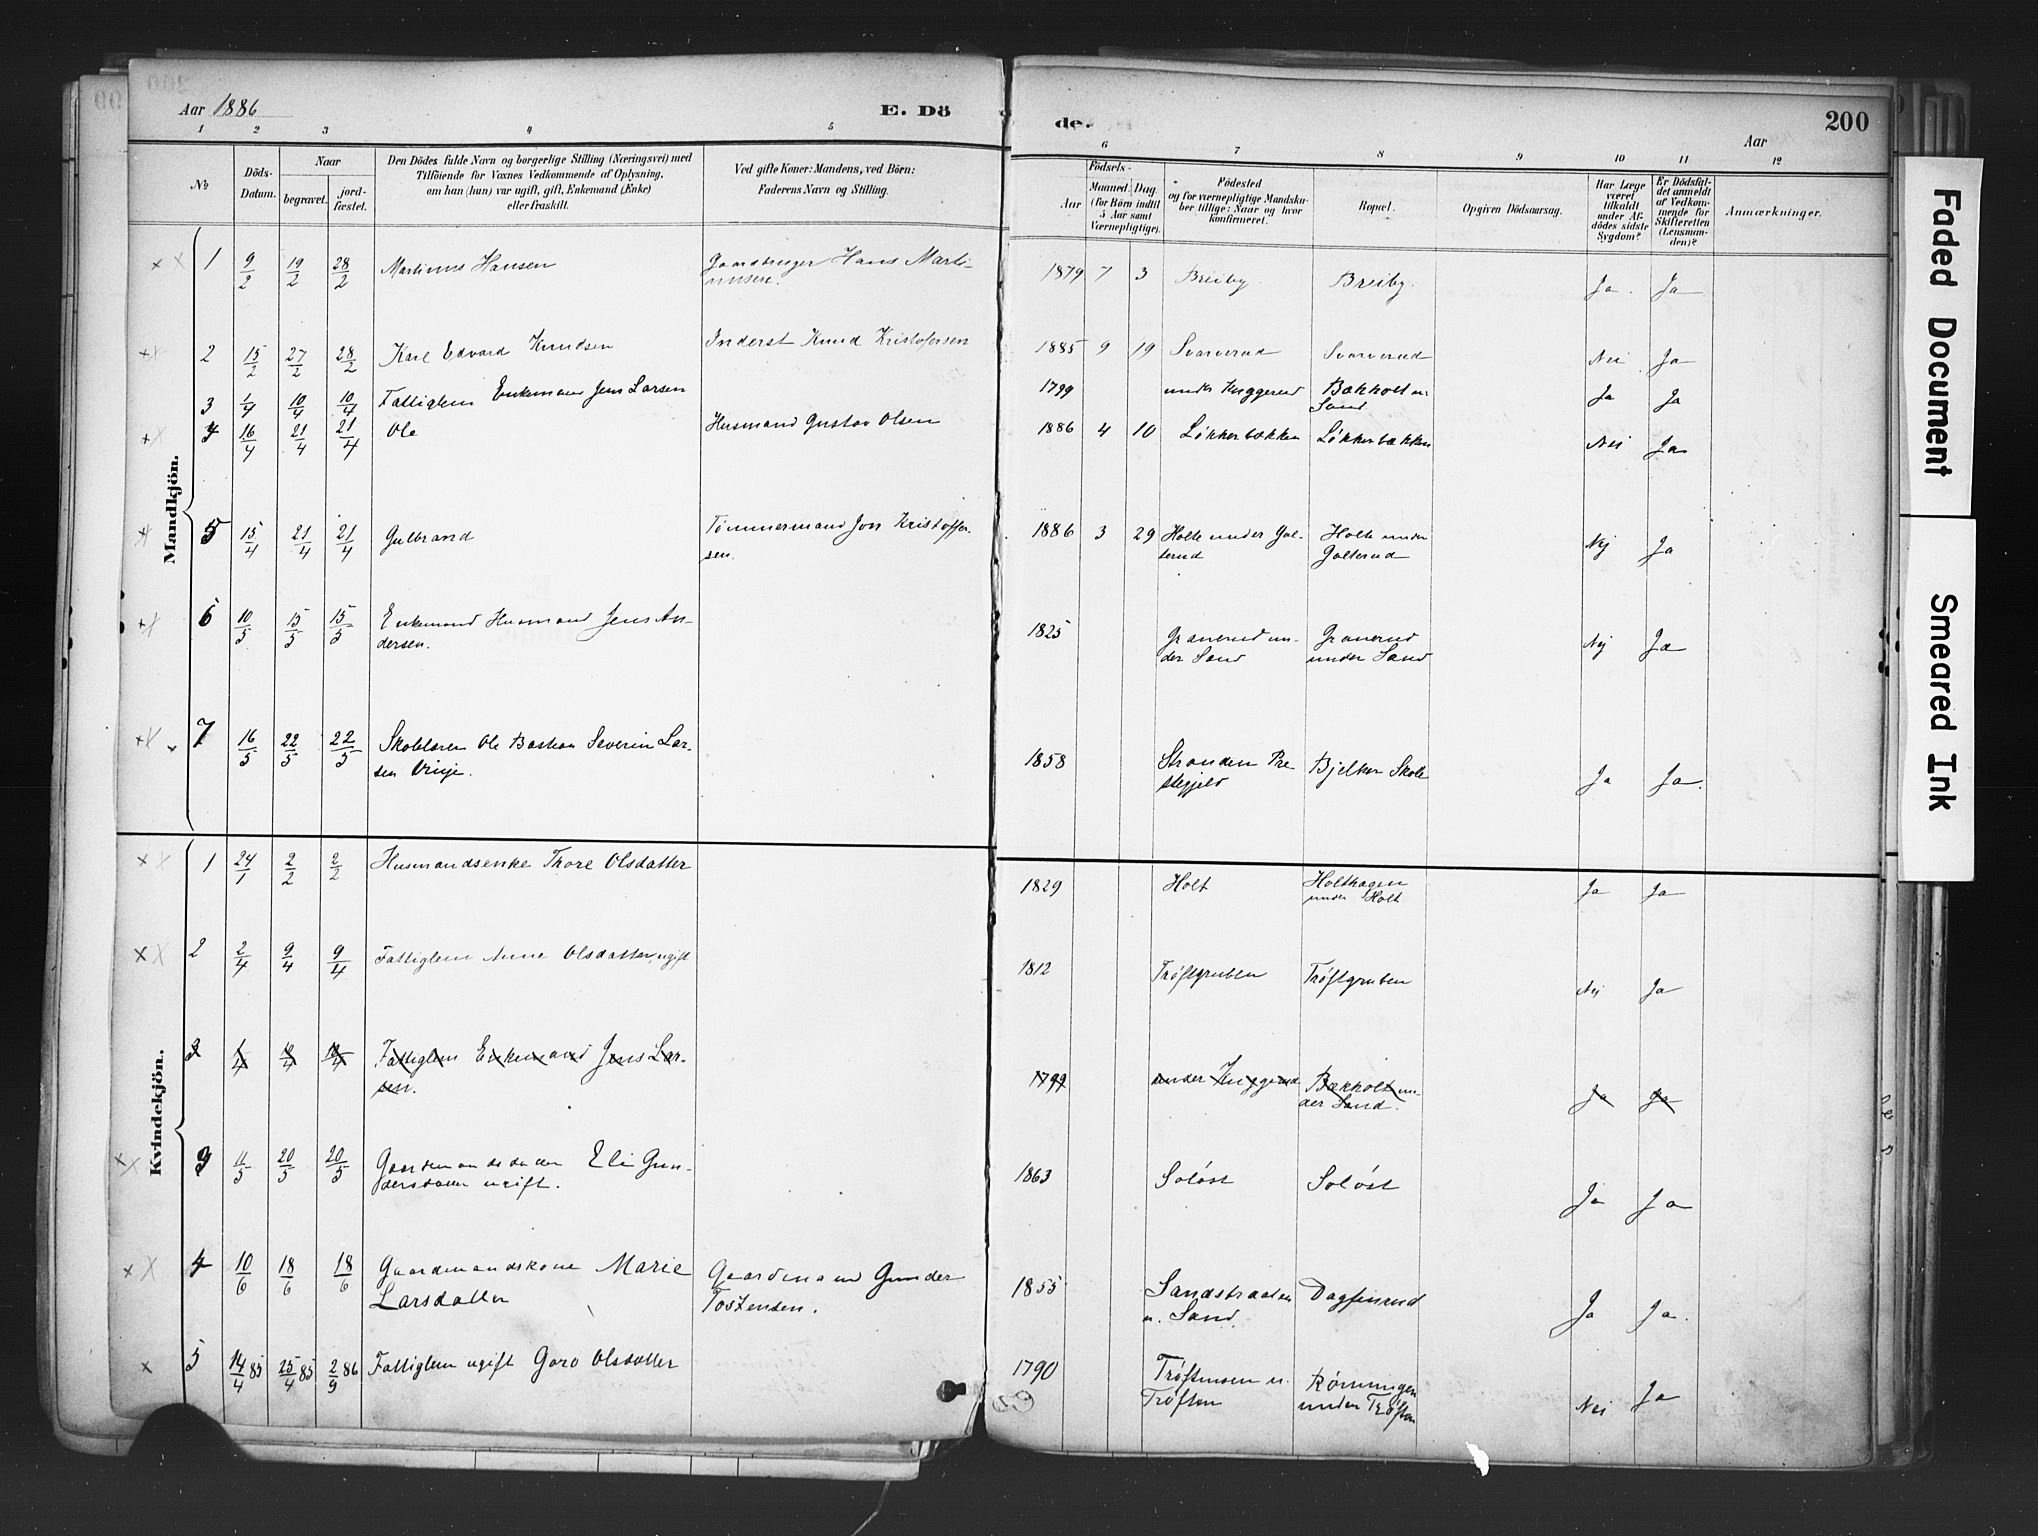 Aar 1886
E. Dö
de.
Aar
200
1 2 3 4 5 6 7 8 9 10 11 12
No
Döds-Datum.
Naar
begravet.
jord-fæstet.
Den Dödes fulde Navn og borgerlige Stilling (Næringsvei) med
Tilföiende for Voxnes Vedkommende af Oplysning,
om han (hun) var ugift, gift, Enkemand (Enke)
eller fraskilt.
Ved gifte Koner: Mandens, ved Börn:
Faderens Navn og Stilling.
Födsels-
Aar
Maaned. Dag
(for Börn indtil
5 Aar samt
Værnepligtige).
Födested
og for værnepligtige Mandska-
ber tillige: Naar og hvor
konfirmeret.
Bopæl.
Opgiven Dödsaarsag.
Har Læge
været
tilkaldt
under Af-
dödes sidste
Sygdom?
Er Dödsfal-
det anmeldt
af Vedkom-
mende for
Skifteretten
(Lensman-
den)?
Anmærkninger.
Mandkjön.
1 9/2 19/2 28/2 Martinus Hansen Gaardbruger Hans Marti-
nusen. 1879 7 3 Breiby. Breiby. Ja. Ja
2 15/2 27/2 28/2 Karl Edvard Knudsen Inderst Knud Kristofersen 1885 9 19 Svarverud Svarverud Nei Ja
3 1/4 10/4 10/4 Fattiglem Enkemand Jens Larsen 1799 under Kuggerud Bækholt u.
Sand Ja Ja
4 16/4 21/4 21/4 Ole Husmand Gustav Olsen 1886 4 10 Løkkerbækken Løkkerbækken Nei Ja
5 15/4 21/4 21/4 Gulbrand Tømmermand Jon Kristoffer-
sen. 1886 3 29 Holte under Gol-
terud Holte under
Golterud Nej Ja
6 10/5 15/5 15/5 Enkemand Husmand Jens An-
dersen. 1825 Granerud un-
der Sand Granerud
under Sand Nej Ja
7 16/5 22/5 22/5 Skolelærer Ole Bastian Severin Lar-
sen Vinje. 1858 Stranden Pre
stegjeld Bjelker Skole Ja Ja.
Kvindekjön.
1 24/1 2/2 2/2 Husmandsenke Thore Olsdatter 1829 Holt Holthagen
under Holt Ja Ja
2 2/4 9/4 9/4 Fattiglem Anne Olsdatter, ugift 1812 Trøftgruben Trøftgruben Nej Ja
3 1/4 10/4 10/4 Fattiglem Enkemand Jens Lar-
sen. 1799 under Kuggerud Bækholt un-
der Sand. Ja Ja
3 11/5 20/5 20/5 Gaardmandsdatter Eli Gun-
dersdatter ugift. 1863 Soløst Soløst Ja Ja
4 10/6 18/6 18/6 Gaardmandskone Marie
Larsdatter Gaardmand Gunder
Tostensen. 1855 Sandstraaten
u. Sand. Dagfinrud Ja Ja.
5 14/4 85 25/4 85 2/9 86 Fattiglem ugift Goro Olsdatter 1790 Trøftmoen u.
Trøften Rømningen
under Trøften Nei Ja
Faded Document
Smeared Ink